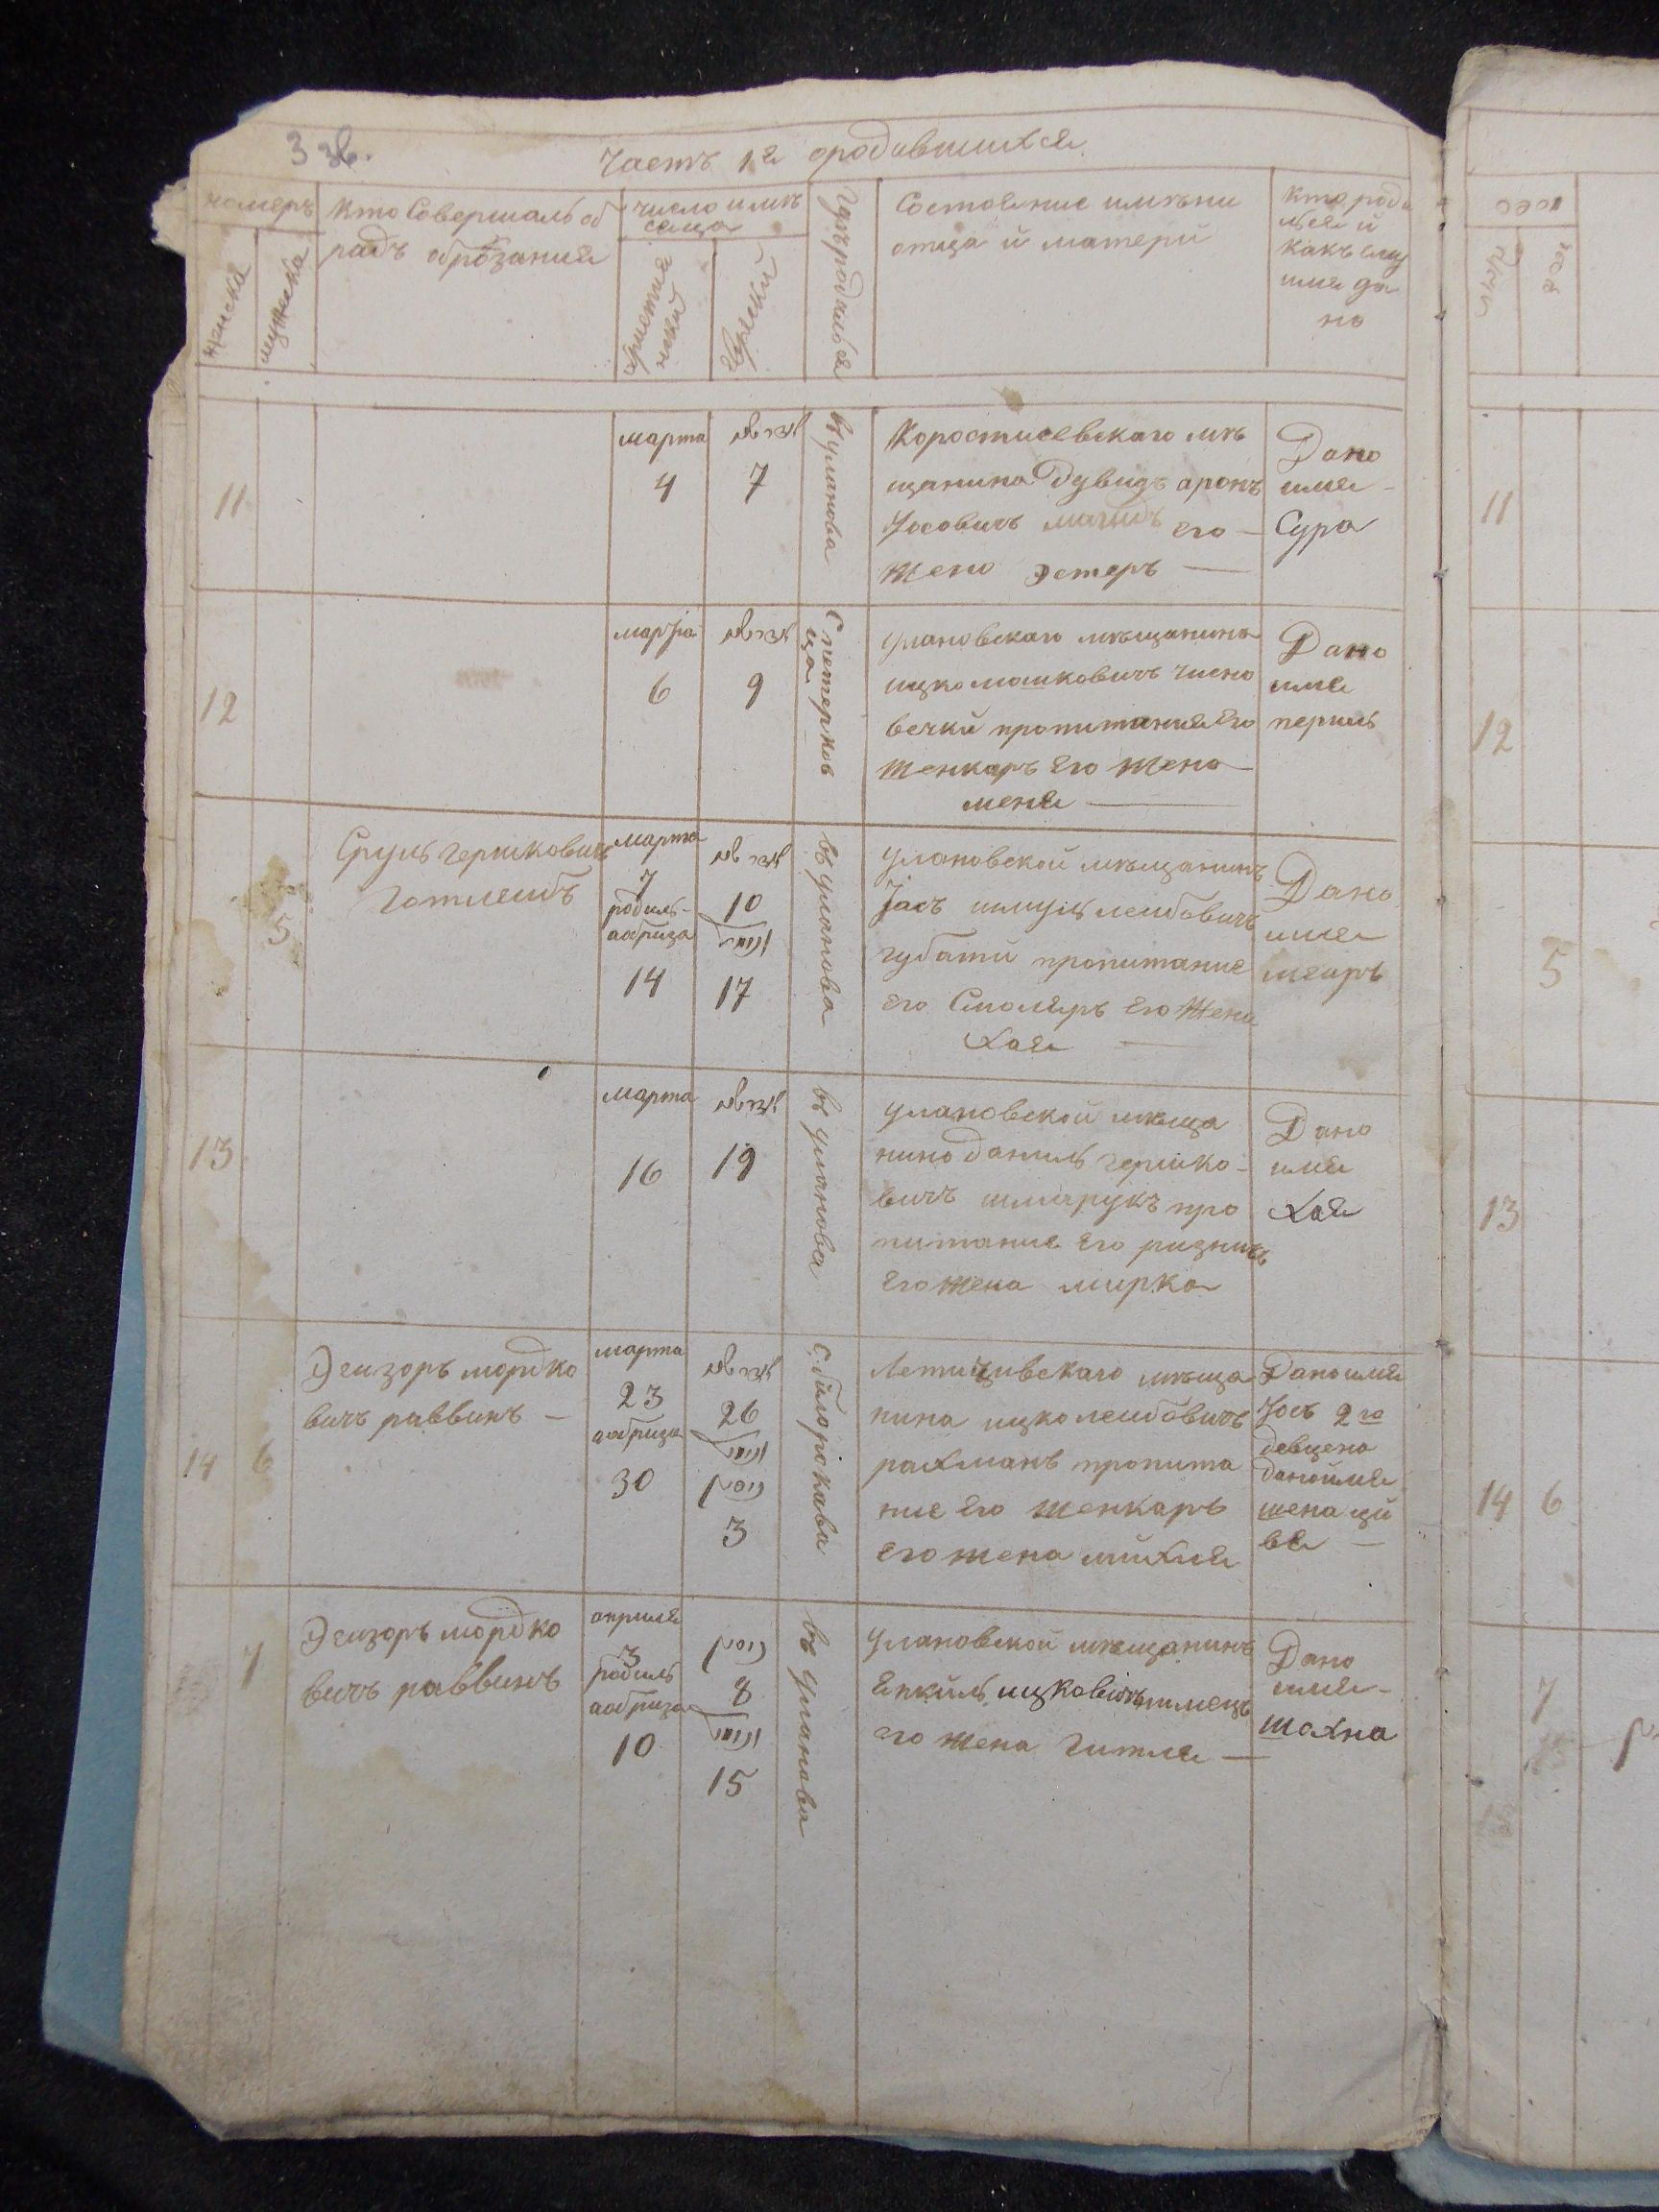 3 зв.
Часть 1я ородившихся
номеръ
женска
мужеска
кто Совершалъ об
радъ обрѣзания
число и мѣ
сяца
христиа
нский
Еврейский
Гдѣ родился
Состояние имѣни
отца й матери
кто роди
лся й
какъ ему
имя да
но
11
марта
4
7
въ уланова
Коростисевскаго мѣ
щанина Дувидъ аронъ
Йосовичъ его —
жено эстеръ —
Дано
имя -
Сура
12
марта
6
9
С петерков
ца
улановскаго мѣщанинъ
ицко мошковичъ чисно
вечкй пропитания Его
шенкаръ Его жена
меня —
Дано
имя
перлъ
5
Сруль гершковичъ
готлейбъ
марта
7
родилъ-
аобриза
14
10
17
въ уланова
улановской мѣщанинъ
Јосъ шмуль лейбовичъ
губатй пропитание
его Смоляръ Его жена
хая —
Дано
имя
меиръ
13
марта
16
19
въ уланова
улановской мѣща
нино даниль гершко-
вичъ шмарукъ про
питание Его ризникъ
Его жена мирка
Дано
имя
хая
14
6
Элизоръ мордко
вичъ раввинъ —
марта
23
аобриза
30
26
3
с. билорокава
Летичивскаго мѣща
нина ицко лейбовичъ
рахманъ пропита
ние Его шенкаръ
Его жена мйхля
Дано имя
Йосъ 2го
девцена
дано имя
шена цй
вя —
7
Элизоръ мордко
вичъ раввинъ
априля
3
родилъ
аобриза
10
8
15
въ уланова
улановской мѣщанинъ
Янкйль ицковичъ
его жена гитля —
Дано
имя -
шахна
11
12
5
13
14
6
7